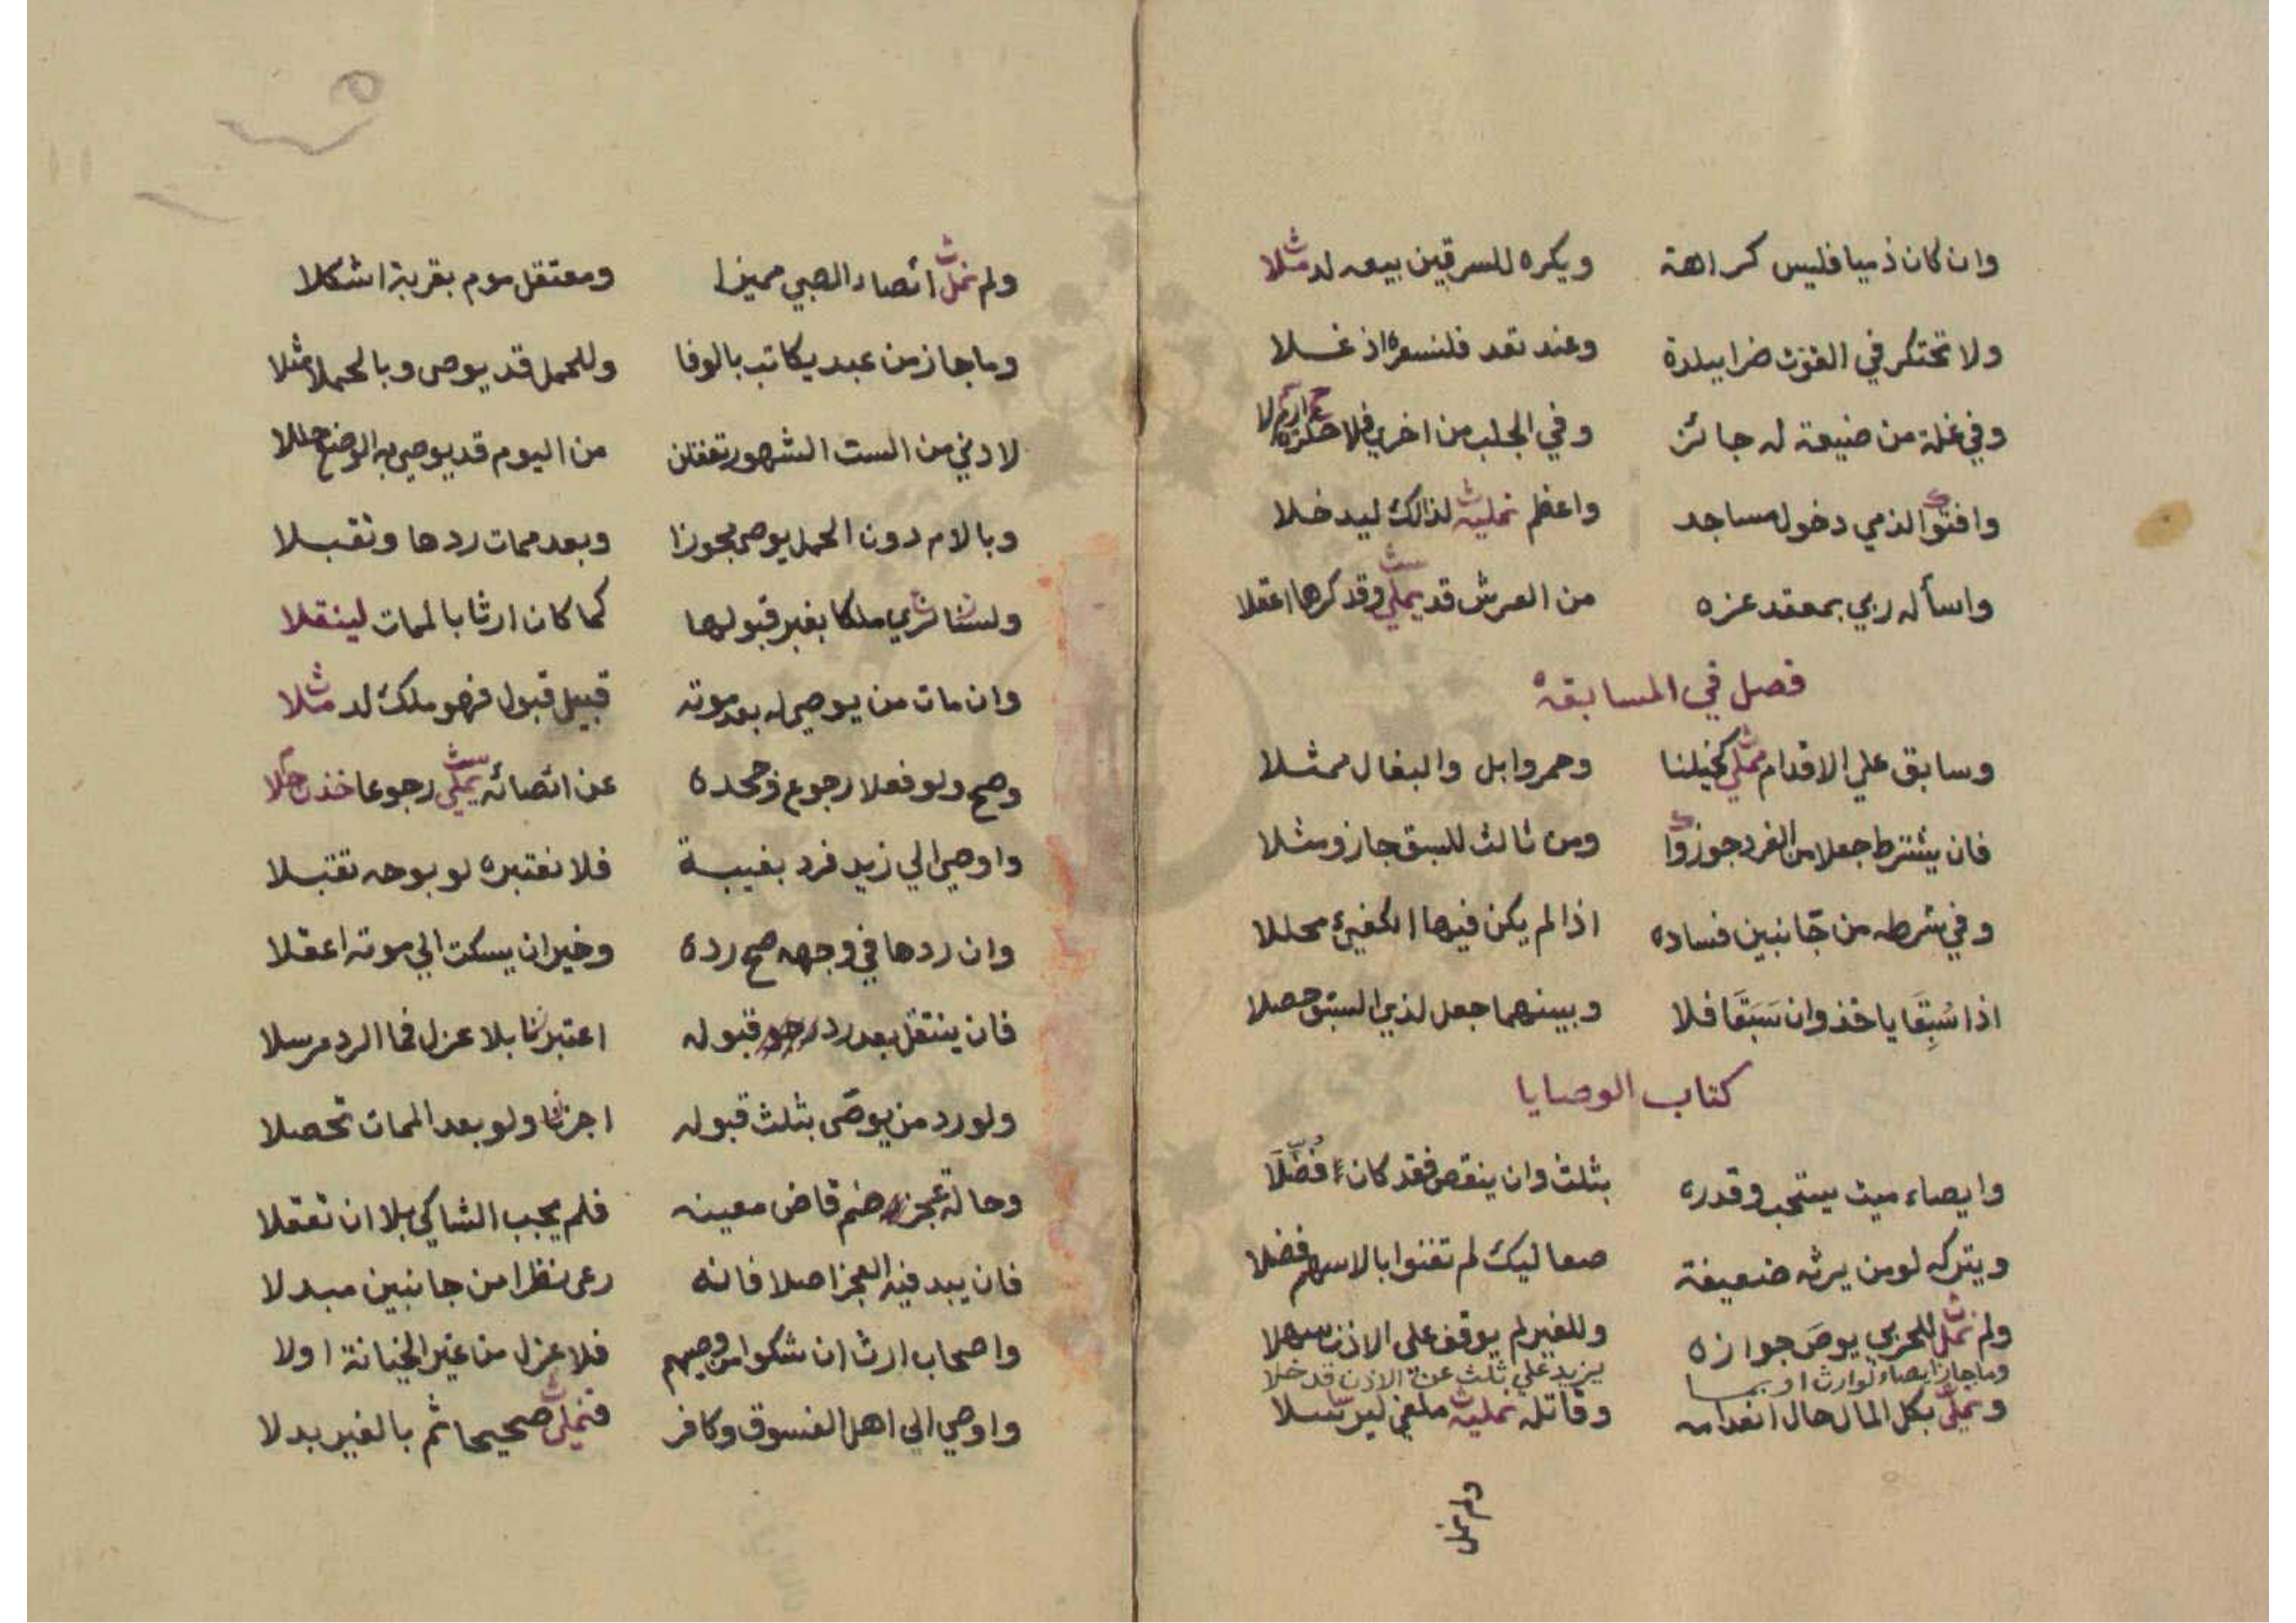 وان كان ذميا فليس كراهة ويكره للسرقين بيعه لد مثلا
ولا تحتكر في القوت ضرا ببلدة وعند تعد فلنسعره اذ غلا
وفي غلة من ضيعة له جائز وفي الجلب من اخرى فلا
وافتوا الذمي دخول مساجد واعظم نمليه لذالك ليدخلا
واسأله ربي بمعقد عزه من العرش قد يملي وقد كرها اعقلا
فصل في المسابقة
وسابق علي الاقدام نملي كخيلنا وحمر وابل والبغال ممثلا
فان يشترط جعلا من الفرد جوزوا ومن ثالث للسبق جاز ومثلا
وفي شرطه من جانبين فساده اذا لم يكن فيها الكفيئ محللا
اذا سُبِقَا ياخذ وان سَبَقَا فلا وبينهما جعل لذي السبق حصلا
كتاب الوصايا
وايصاء ميت يستحب وقدره بثلث وان ينقص فقد كان افضلا
ويتركه لو من يرثه ضعيفة صعاليك لم تغنوا بالاسهم فضلا
ولم نمل للحربي يوصَ جوازه وللغير لم يوقف على الاذن سهلا
وما جاز ايصاء لوارث او بما يزيد علي ثلث عن الاذن قد خلا
ونملي بكل المال حال انعدامه وقاتله نمليه ملغي ليرسلا
ولم نمل
ولم نمل ائصاء الصبي مميزا ومعتقل موم بقربة اشكلا
وما جاز من عبد يكاتب بالوفا وللحمل قد يوصى وبالحمل مثلا
لادني من الست الشهور تعقلن من اليوم قد يوصي به الوضع حللا
وبالام دون الحمل يوصي مجوزا وبعد ممات ردها وتقبلا
ولسنا نري ملكا بغير قبولها كما كان ارثا بالممات لينقلا
وان مات من يوصي له بعد موته قبيل قبول فهو ملك لد مثلا
وصح ولو فعلا رجوع وجحده عن ائصائه يملي رجوعا خذن حلا
واوصي الي زيد فرد بغيبة فلا نعتبره لو بوجه تقبلا
وان ردها في وجهه صح رده وخير ان يسكت الي موته اعقلا
فان ينتقل بعد رد قبوله اعتبرنا بلا عزل فما الرد مرسلا
ولو رد من يوصَى بثلث قبوله اجزنا ولو بعد الممات تحصلا
وحالة عجز ضم قاض معينه فلم يجب الشاكي بلا ان تعقلا
فان يبد فيه العجز اصلا فانه رعى نظرا من جانبين مبدلا
واصحاب ارث ان شكوا من وصيهم فلا عزل من غير الخيانة اولا
واوصي الي اهل الفسوق وكافر فنملي صحيحا ثم بالغير بدلا